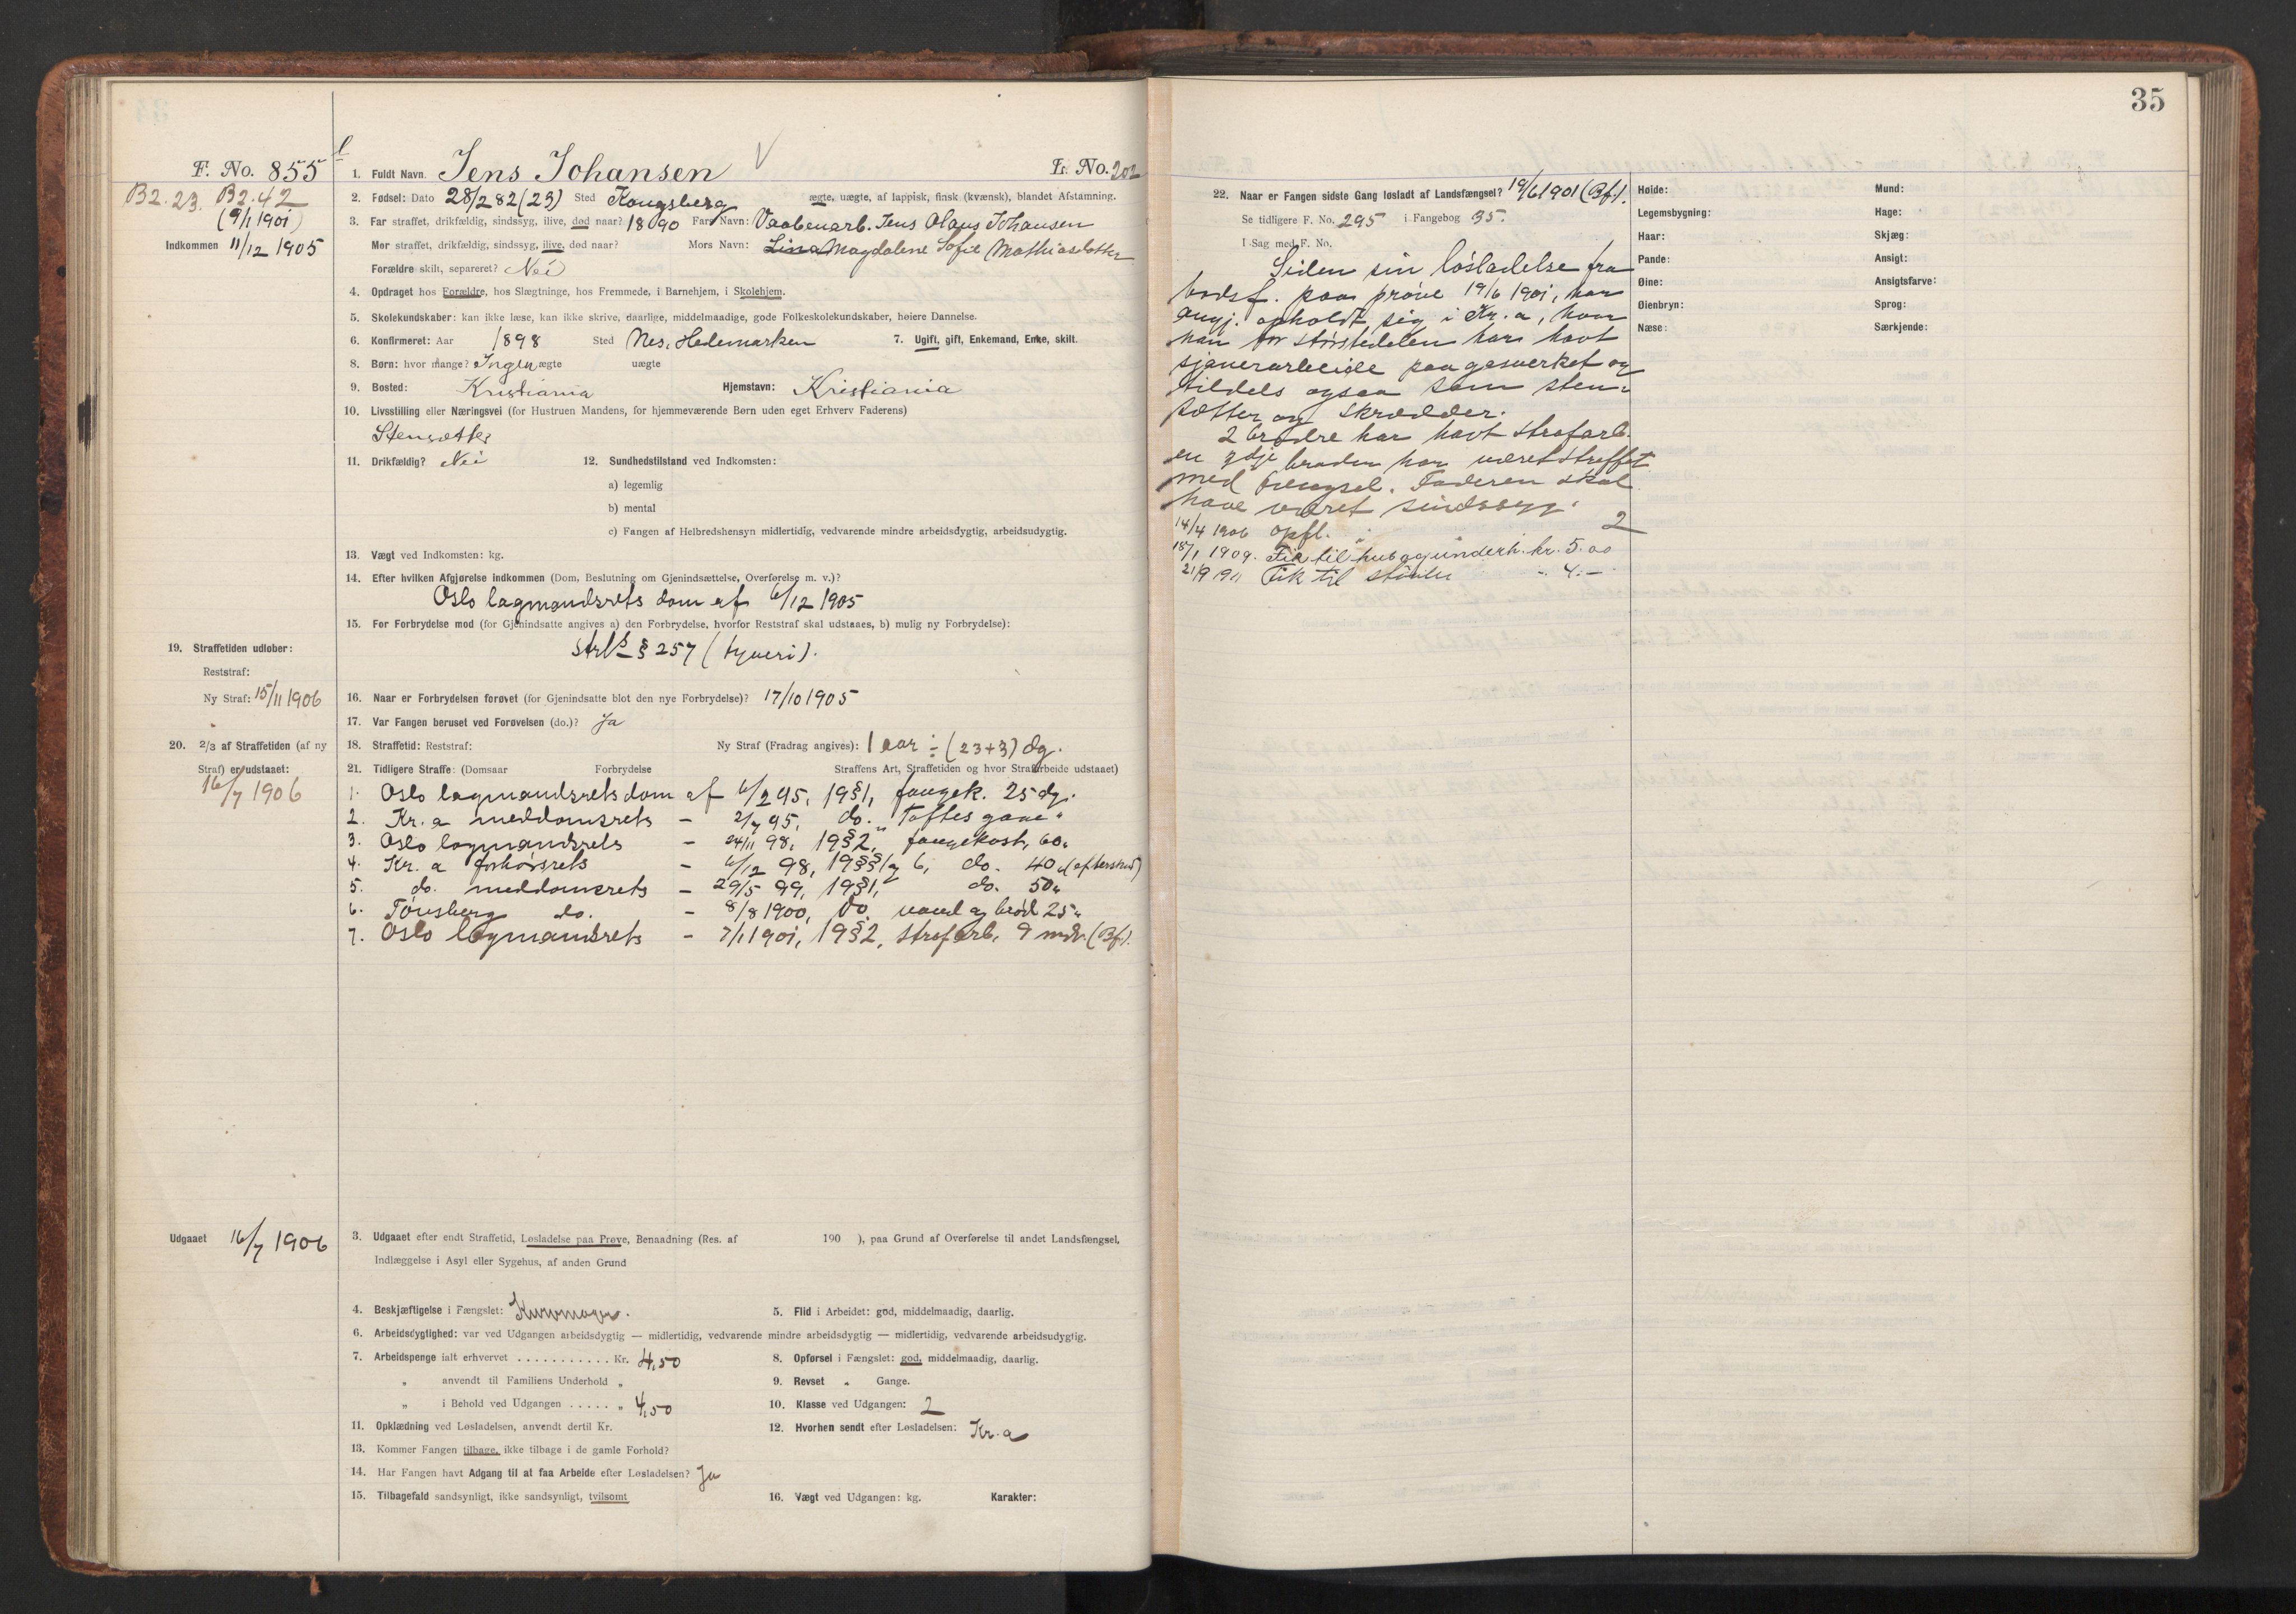 35
F. No. 855
B2.23. B2.42
(9/1 1901)
Indkommen 11/12 1905
1. Fuldt Navn. Jens Johansen
L. No. 202
2. Fødsel: Dato 28/2 82 (23) Sted Kongsberg ægte, uægte, af lappisk, finsk (kvænsk), blandet Afstamning.
3. Far straffet, drikfældig, sindssyg, ilive, død naar? 1890 Fars Navn: Vaabenarb. Jens Olaus Johansen
Mor straffet, drikfældig, sindssyg, ilive, død naar? Mors Navn: Lina Magdalene Sofie Mathiasdatter
Forældre skilt, separeret? Nei
4. Opdraget hos Forældre, hos Slægtninge, hos Fremmede, i Barnehjem, i Skolehjem.
5. Skolekundskaber: kan ikke læse, kan ikke skrive, daarlige, middelmaadige, gode Folkeskolekundskaber, høiere Dannelse.
6. Konfirmeret: Aar 1898 Sted Nes, Hedemarken 7. Ugift, gift, Enkemand, Enke, skilt.
8. Børn: hvor mange? Ingen ægte uægte
9. Bosted: Kristiania Hjemstavn: Kristiania
10. Livsstilling eller Næringsvei (for Hustruen Mandens, for hjemmeværende Børn uden eget Erhverv Faderens)
Stensætter
11. Drikfældig? Nei 12. Sundhedstilstand ved Indkomsten:
a) legemlig
b) mental
c) Fangen af Helbredshensyn midlertidig, vedvarende mindre arbeidsdygtig, arbeidsudygtig.
13. Vægt ved Indkomsten: kg.
14. Efter hvilken Afgjørelse indkommen (Dom, Beslutning om Gjenindsættelse, Overførelse m. v.)?
Oslo lagmandsrets dom af 6/12 1905
15. For Forbrydelse mod (for Gjenindsatte angives a) den Forbrydelse, hvorfor Reststraf skal udstaaes, b) mulig ny Forbrydelse):
Strl § 257 (tyveri).
19. Straffetiden udløber:
Reststraf:
Ny Straf: 15/11 1906
16. Naar er Forbrydelsen forøvet (for Gjenindsatte blot den nye Forbrydelse)? 17/10 1905
17. Var Fangen beruset ved Forøvelsen (do.)? Ja
20. 2/3 af Straffetiden (af ny
Straf) er udstaaet:
16/7 1906
18. Straffetid: Reststraf: Ny Straf (Fradrag angives): 1 aar ÷ (23+3) dg.
21. Tidligere Straffe: (Domsaar Forbrydelse Straffens Art, Straffetiden og hvor Strafarbeide udstaaet)
1. Oslo lagmandsrets dom af 6/2 95, 19§1, fangek. 25 dg.
2. Kr.a meddomsrets – 2/7 95, do. "Toftes gave"
3. Oslo lagmandsrets – 24/11 98, 19§2, fangekost, 60 "
4. Kr.a forhørsrets – 6/12 98, 19§§1 og 6, do. 40 " (efterskud)
5. do. meddomsrets – 29/5 99, 19§1, do. 50 "
6. Tønsberg do. – 8/8 1900, do. vand og brød 25 "
7. Oslo lagmandsrets – 7/1 1901, 19§2, strafarb. 9 mdr. (Bf.).
Udgaaet 16/7 1906
3. Udgaaet efter endt Straffetid, Løsladelse paa Prøve, Benaadning (Res. af 190 ), paa Grund af Overførelse til andet Landsfængsel,
Indlæggelse i Asyl eller Sygehus, af anden Grund
4. Beskjæftigelse i Fængslet: Kurvmager. 5. Flid i Arbeidet: god, middelmaadig, daarlig.
6. Arbeidsdygtighed: var ved Udgangen arbeidsdygtig — midlertidig, vedvarende mindre arbeidsdygtig — midlertidig, vedvarende arbeidsudygtig.
7. Arbeidspenge ialt erhvervet . . . . . . . . . . . Kr. 4,50 8. Opførsel i Fængslet: god, middelmaadig, daarlig.
" anvendt til Familiens Underhold " 9. Revset " Gange.
" i Behold ved Udgangen . . . . . " 4,50 10. Klasse ved Udgangen: 2
11. Opklædning ved Løsladelsen, anvendt dertil Kr. 12. Hvorhen sendt efter Løsladelsen: Kr.a
13. Kommer Fangen tilbage, ikke tilbage i de gamle Forhold?
14. Har Fangen havt Adgang til at faa Arbeide efter Løsladelsen? Ja
15. Tilbagefald sandsynligt, ikke sandsynligt, tvilsomt 16. Vægt ved Udgangen: kg. Karakter:
22. Naar er Fangen sidste Gang løsladt af Landsfængsel? 19/6 1901 (Bf.).
Se tidligere F. No. 295 i Fangebog 35.
I Sag med F. No.
Siden sin løsladelse fra
bodsf. paa prøve 19/6 1901, har
angj. opholdt sig i Kr.a, hvor
han for størstedelen har havt
sjauerarbeide paa gasverket og
tildels ogsaa som sten-
sætter og skrædder.
2 brødre har havt strafarb.
en 3dje broder har været straffet
med fængsel. Faderen skal
have været sindssyg.
14/4 1906 opfl. 2
15/1 1909. Fik til hus og underh. kr. 5.00
21/9 1911 Fik til støvler - 4.–
Høide: Mund:
Legemsbygning: Hage:
Haar: Skjæg:
Pande: Ansigt:
Øine: Ansigtsfarve:
Øienbryn: Sprog:
Næse: Særkjende: